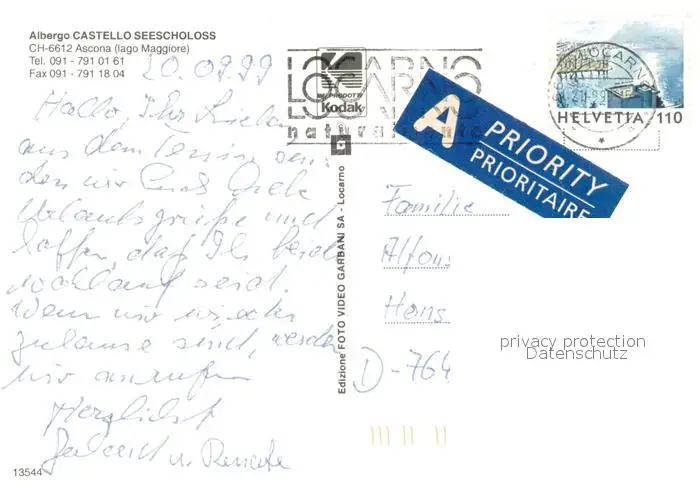 Albergo CASTELLO SEESCHOLOSS
CH-6612 Ascona (lago Maggiore)
Tel. 091 - 791 01 61
Fax 091 - 791 18 04
20.09.99
Hallo, Ihr Lieben
aus dem Tessin sen-
den wir Euch
Urlaubsgrüße und
hoffen, daß Ihr beide
wohlauf seid.
Wenn wir wieder
zuhause sind, werden
wir anrufen
Herzlichst
u. Renate
13544
Edizione FOTO VIDEO GARBANI SA - Locarno
LOCARNO
LOCARNO
LOCARNO
Kodak
naturalmente
HELVETIA 110
LOCARNO
A PRIORITY
PRIORITAIRE
Familie
Alfons
Hans
D-764
privacy protection
Datenschutz